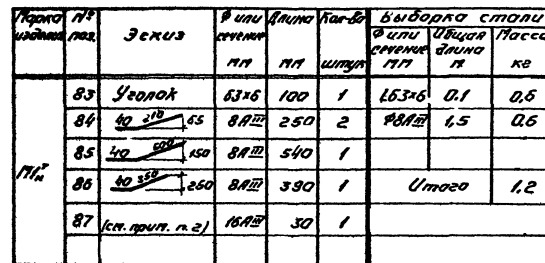 Марка изделия № поз. Эскиз Ф или сечение мм Длина мм Кол-во штук Выборка стали
Ф или сечение мм Общая длина м Масса кг
83 Уголок 63×6 100 1 L63×6 0.1 0,6
84 40 210 65 8АIII 250 2 Ф8АIII 1,5 0.6
85 40 500 150 8АIII 540 1
86 40 350 260 8АIII 390 1 Итого 1,2
87 (см. прим. п. 2) 16АIII 30 1